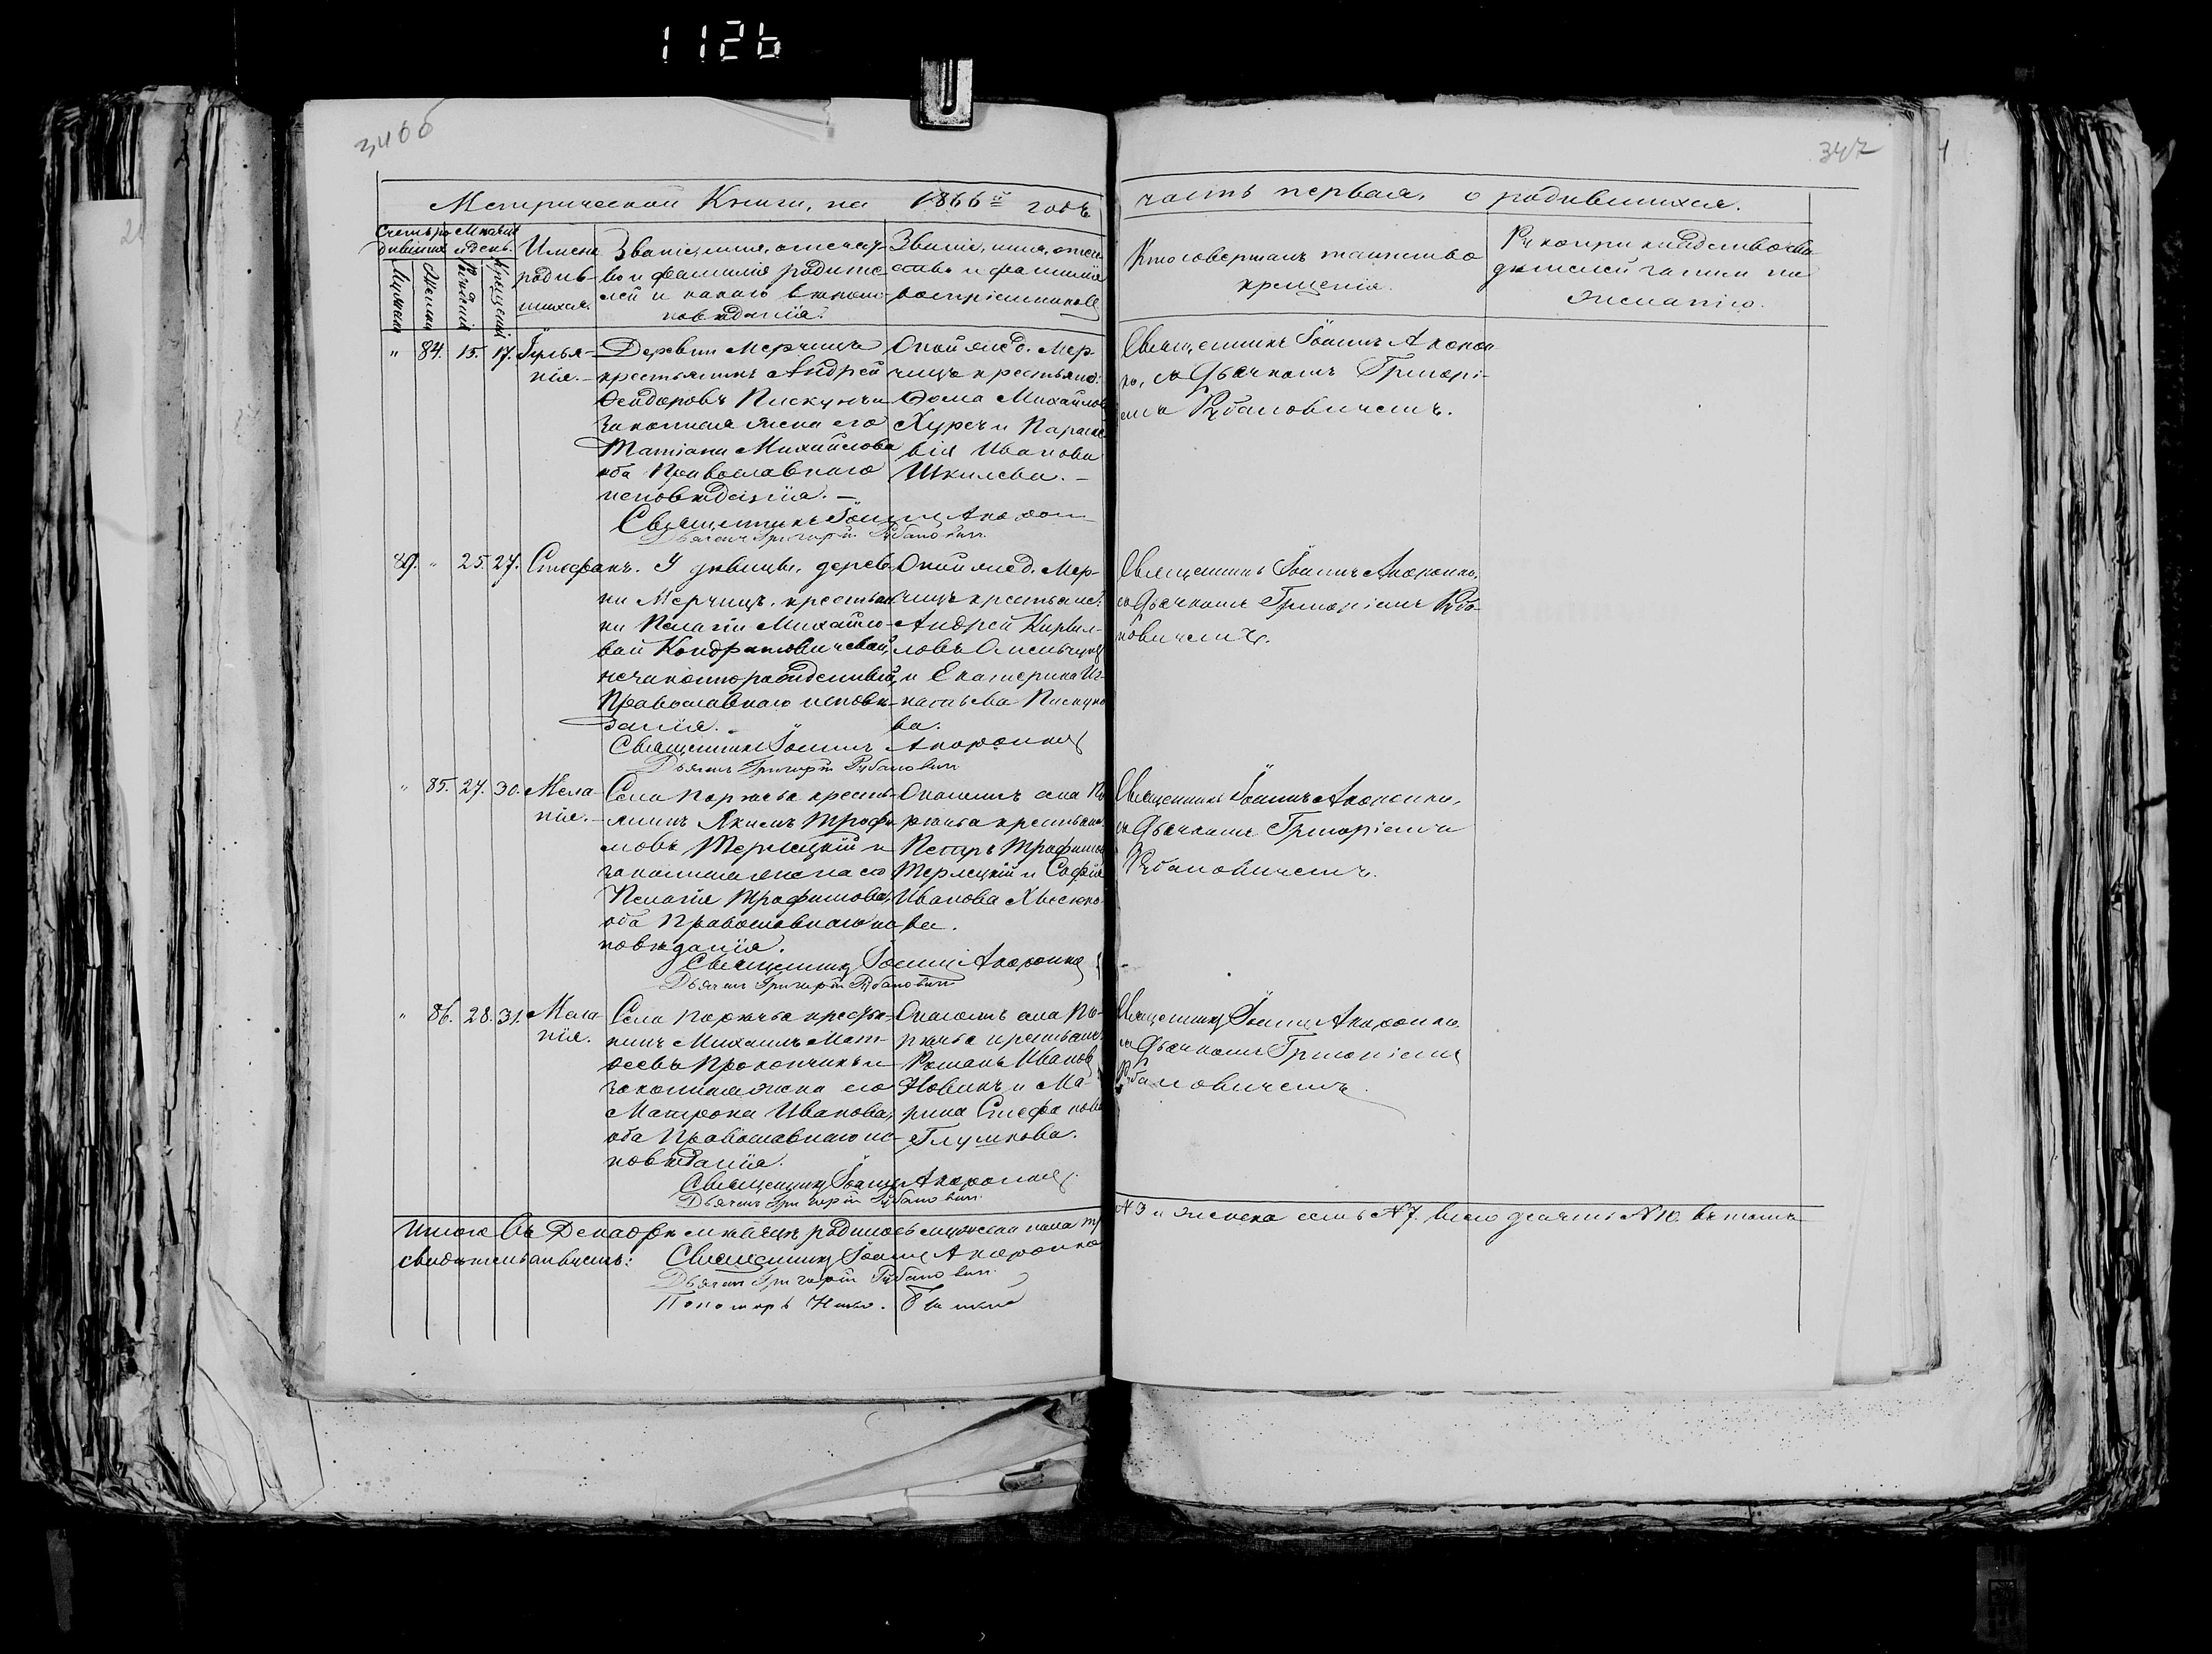 1126
346 об
347
Метрической Книги, на 1866й годъ
часть первая, о родившихся.
Счетъ родившихся
Мѣсяцъ и день.
Мужеска
Женска
Рожденія
Крещенія
Имена
родив-
шихся.
Званіе, имя, отчест-
во и фамилія родите-
лей и какого вѣроис-
повѣданія.
Званіе, имя, отче-
ство и фамилія
воспріемниковъ
Кто совершалъ таинство
крещенія.
Рукоприкладство сви-
дѣтелей записи по
желанію.
" 84. 15. 17. Іулья-
нія.
Деревни Мерчицъ
крестьянинъ Андрей
Ѳеидоровъ Пискунъ и
законная жена его
Татіана Михайлова
оба Православнаго
исповѣданія. —
Священникъ Іоаннъ
Дьячекъ Григорій Рубановичъ
Оной же д. Мер-
чицъ крестьяне:
Ѳома Михайловъ
и Параске-
вія Иванова
Священникъ Іоаннъ
съ Дьячкомъ Григорі-
емъ Рубановичемъ.
89. " 25. 27. Стефанъ.
У дѣвицы, дерев-
ни Мерчицъ, крестьян-
ки Пелагіи Михайло-
вой Кондратовичевой,
незаконнорожденный,
Православнаго исповѣ-
данія.
Священникъ Іоаннъ
Дьячекъ Григорій Рубановичъ
Оной же д. Мер-
чицъ крестьяне:
Андрей Кирил-
ловъ
и Екатерина Иг-
натьева Пискуно-
ва.
Священникъ Іоаннъ
съ Дьячкомъ Григоріемъ Руба-
новичемъ.
" 85. 27. 30. Мела-
нія.
Села Порѣчья кресть-
янинъ Якимъ Трофи-
мовъ Терлецкій и
законная жена его
Пелагія Трофимова,
оба Православнаго ис-
повѣданія.
Священникъ Іоаннъ
Дьячекъ Григорій Рубановичъ
Онагожъ села По-
рѣчья крестьяне:
Петръ Трофимовъ
Терлецкій и Софія
Иванова
ва.
Священникъ Іоаннъ
съ Дьячкомъ Григоріемъ
Рубановичемъ.
" 86. 28. 31. Мела-
нія.
Села Порѣчья крестья-
нинъ Михаилъ Мат-
ѳеевъ Прокопчикъ и
законная жена его
Матрона Иванова,
оба Православнаго ис-
повѣданія.
Священникъ Іоаннъ
Дьячекъ Григорій Рубановичъ
Онагожъ села По-
рѣчья крестьяне:
Романъ Ивановъ
Новикъ и Ма-
рина Стефанова
Глушкова.
Священникъ Іоаннъ
съ Дьячкомъ Григоріемъ
Рубановичемъ.
Итого въ Декабрѣ мѣсяцѣ родилось мужеска пола три
№ 3 и женска семь № 7. всего десять № 10. въ томъ
свидѣтельствуемъ: Священникъ Іоаннъ
Дьячекъ Григорій Рубановичъ
Пономарь